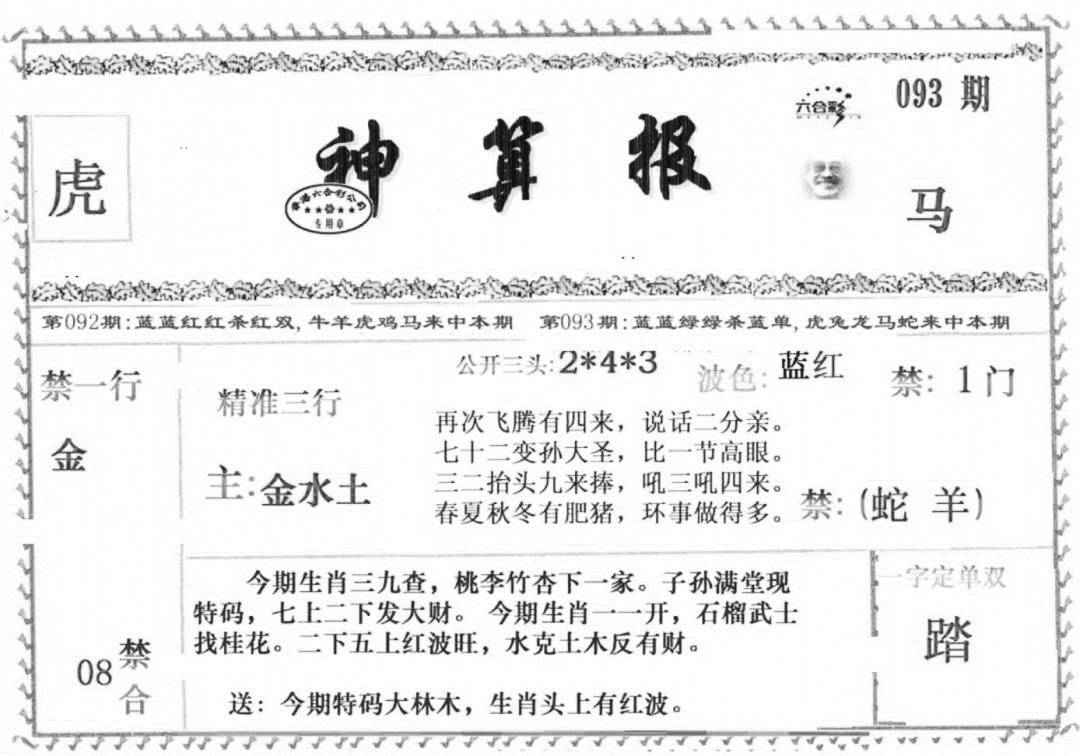 093 期
六合彩
虎
神算报
香港六合彩公司
专用章
马
第092期:蓝蓝红红杀红双,牛羊虎鸡马来中本期 第093期:蓝蓝绿绿杀蓝单,虎兔龙马蛇来中本期
禁一行
金
精准三行
主:金水土
公开三头:2*4*3
波色:蓝红
禁:1门
再次飞腾有四来，说话二分亲。
七十二变孙大圣，比一节高眼。
三二抬头九来捧，吼三吼四来。
春夏秋冬有肥猪，环事做得多。
禁:(蛇 羊)
08禁合
今期生肖三九查，桃李竹杏下一家。子孙满堂现
特码，七上二下发大财。 今期生肖一一开，石榴武士
找桂花。二下五上红波旺，水克土木反有财。
送：今期特码大林木，生肖头上有红波。
一字定单双
踏